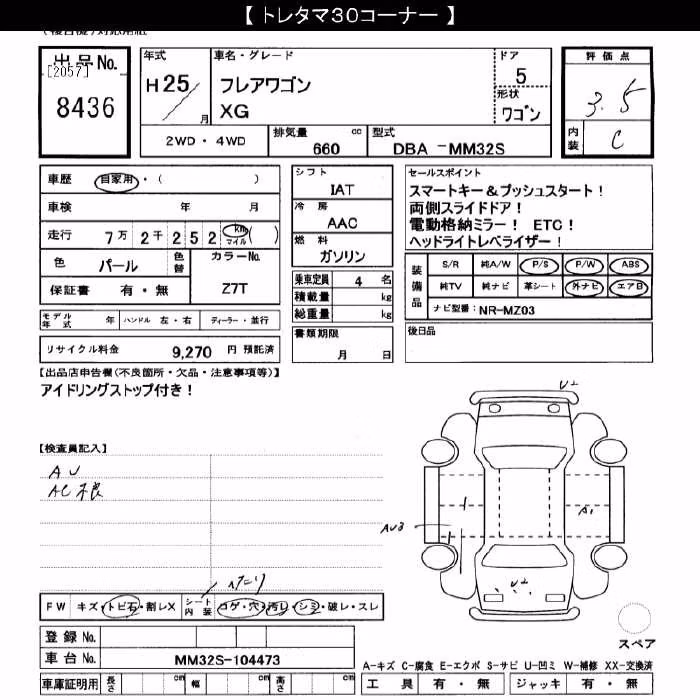 【 トレタマ30コーナー 】
出品No.
[2057]
8436
年式
H 25 / 月
車名・グレード
フレアワゴン
XG
ドア
5
形状
ワゴン
評価点
3.5
内装
C
2WD・4WD
排気量 660 cc
型式 DBA -MM32S
車歴 自家用・( )
車検 年 月
走行 7万 2千 2 5 2 km マイル ( )
色 パール 色替
カラーNo. Z7T
保証書 有・無
モデル年式 年 ハンドル 左・右 ディーラー・並行
リサイクル料金 9,270 円 預託済
シフト
IAT
冷房
AAC
燃料
ガソリン
乗車定員 4 名
積載量 kg
総重量 kg
書類期限
月 日
セールスポイント
スマートキー&プッシュスタート!
両側スライドドア!
電動格納ミラー! ETC!
ヘッドライトレベライザー!
装備品
S/R 純A/W P/S P/W ABS
純TV 純ナビ 革シート 外ナビ エアB
ナビ型番: NR-MZ03
後日品
【出品店申告欄(不良箇所・欠品・注意事項等)】
アイドリングストップ付き!
【検査員記入】
AU
AC不良
U2
A1
AU3
U2
FW キズ・トビ石・割レX
シート内装 コゲ・穴・汚レ・シミ・破レ・スレ
登録No.
車台No. MM32S-104473
車庫証明用 長さ cm 幅 cm 高さ cm
スペア
A-キズ C-腐食 E-エクボ S-サビ U-凹ミ W-補修 XX-交換済
工具 有・無 ジャッキ 有・無